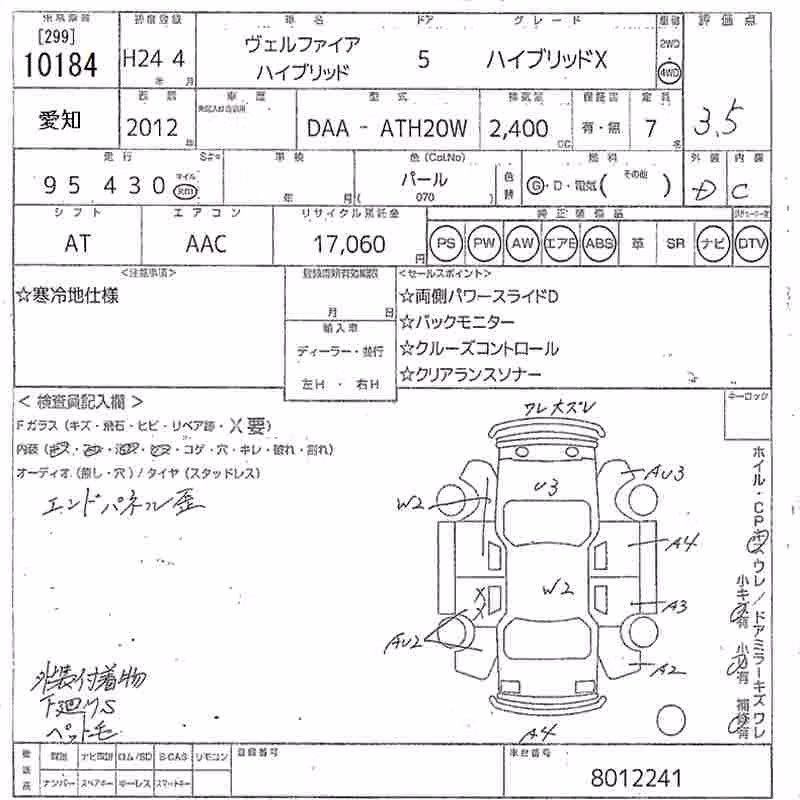 [299]
10184
初度登録
H24 4
年 月
車名
ヴェルファイア
ハイブリッド
ドア
5
グレード
ハイブリッドX
2WD
4WD
評価点
3.5
愛知
2012
年
車歴
型式
DAA - ATH20W
排気量
2,400
CC
保証書
有・無
定員
7
名
走行
95430
マイル
km
車検
年 月
色(Col.No)
パール
( 070 )
色替
燃料
G・D・電気( その他 )
外装
D
内装
C
シフト
AT
エアコン
AAC
リサイクル預託金
17,060
円
純正装備品
PS PW AW エアB ABS 革 SR ナビ DTV
<注意事項>
☆寒冷地仕様
月 日
輸入車
ディーラー・並行
左H ・ 右H
<セールスポイント>
☆両側パワースライドD
☆バックモニター
☆クルーズコントロール
☆クリアランスソナー
キーロック
< 検査員記入欄 >
Fガラス (キズ・飛石・ヒビ・リペア跡・X要)
内装 (・コゲ・穴・キレ・破れ・割れ)
オーディオ (無し・穴) / タイヤ (スタッドレス)
エンドパネル歪
外装付着物
下廻りS
ペット毛
ワレ大ズレ
U3
AU3
W2
A4
W2
A3
X
X
AU2
A2
A4
ホイル・CPキズ ウレ / ドアミラーキズ ワレ
小キズ有 小凹有 補修有
ナビROM ROM/SD B-CAS リモコン
ナンバー スペアキー キーレス スマートキー
登録番号
車台番号
8012241